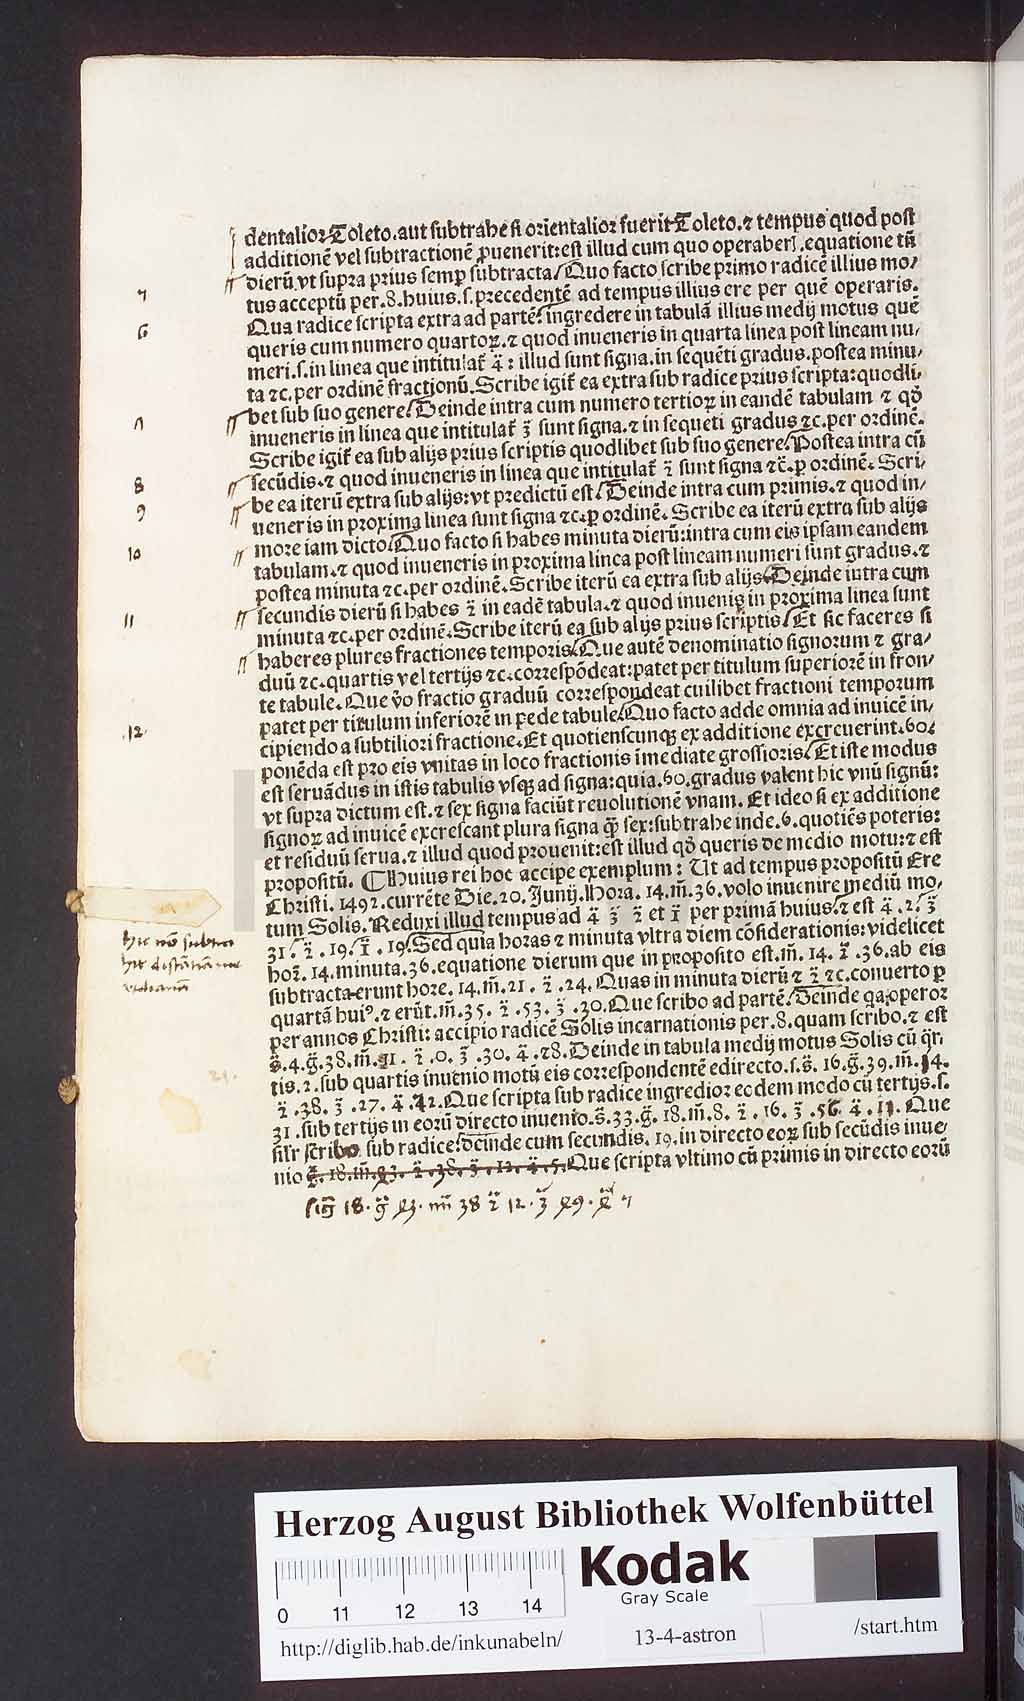 dentalior Toleto.aut subtrahe si orientalior fuerit Toleto.⁊ tempus quod post
additionē vel subtractionē ꝓuenerit:est illud cum quo operaberꝭ.equatione tñ
dierū vt supra prius semꝑ subtracta. Quo facto scribe primo radicē illius mo⸗
tus acceptū per.8.huius.s.precedentē ad tempus illius ere per quē operaris.
Qua radice scripta extra ad partē: ingredere in tabulā illius medij motus quē
queris cum numero quartoꝝ.⁊ quod inueneris in quarta linea post lineam nu⸗
meri.s.in linea que intitulat̄ 4̄: illud sunt signa.in sequēti gradus.postea minu⸗
ta ⁊c.per ordinē fractionū.Scribe igit̄ ea extra sub radice prius scripta:quodli⸗
bet sub suo genere. Deinde intra cum numero tertioꝝ in eandē tabulam ⁊ qđ
inueneris in linea que intitulat̄ 3̄ sunt signa.⁊ in sequēti gradus ⁊c.per ordinē.
Scribe igit̄ ea sub alijs prius scriptis quodlibet sub suo genere. Postea intra cū
secūdis.⁊ quod inueneris in linea que intitulat̄ 2̄ sunt signa ⁊c̄.ꝑ ordinē. Scri⸗
be ea iterū extra sub alijs:vt predictū est. Deinde intra cum primis.⁊ quod in⸗
ueneris in proxima linea sunt signa ⁊c.ꝑ ordinē. Scribe ea iterū extra sub alijs
more iam dicto. Quo facto si habes minuta dierū:intra cum eis ipsam eandem
tabulam.⁊ quod inueneris in proxima linea post lineam numeri sunt gradus.⁊
postea minuta ⁊c.per ordinē.Scribe iterū ea extra sub alijs. Deinde intra cum
secundis dierū si habes 2̄ in eadē tabula.⁊ quod inuenis in proxima linea sunt
minuta ⁊c.per ordinē.Scribe iterū ea sub alijs prius scriptis. Et sic faceres si
haberes plures fractiones temporis. Que autē denominatio signorum ⁊ gra⸗
duū ⁊c.quartis vel tertijs ⁊c.correspōdeat:patet per titulum superiorē in fron⸗
te tabule. Que v̄o fractio graduū correspondeat cuilibet fractioni temporum
patet per titulum inferiorē in pede tabule. Quo facto adde omnia ad inuicē in⸗
cipiendo a subtiliori fractione.Et quotienscunqꝫ ex additione excreuerint.60.
ponēda est pro eis vnitas in loco fractionis īmediate grossioris. Et iste modus
est seruādus in istis tabulis vsqꝫ ad signa:quia.60.gradus valent hic vnū signū:
vt supra dictum est.⁊ sex signa faciūt reuolutionē vnam. Et ideo si ex additione
signoꝝ ad inuicē excrescant plura signa q̄ꝫ sex:subtrahe inde.6.quotiēs poteris:
et residuū serua.⁊ illud quod prouenit:est illud qđ queris de medio motu:⁊ est
propositū. ¶Huius rei hoc accipe exemplum: Ut ad tempus propositū Ere
Christi.1492.currēte Die.20.Junij.Hora.14.m̄.36.volo inuenire mediū mo⸗
tum Solis. Reduxi illud tempus ad 4̄ 3̄ 2̄ et 1̄ per primā huius.⁊ est 4̄.2. 3̄
31. 2̄.19. 1̄.19. Sed quia horas ⁊ minuta vltra diem cōsiderationis:videlicet
hoꝝ.14.minuta.36.equatione dierum que in proposito est.m̄.14. 2̄.36.ab eis
subtracta erunt hore.14.m̄.21. 2̄.24. Quas in minuta dierū ⁊ 2̄ ⁊c.conuerto ꝑ
quartā huiꝰ.⁊ erūt.m̄.35. 2̄.53. 3̄.30.Que scribo ad partē. Deinde qꝛ operor
per annos Christi: accipio radicē Solis incarnationis per.8.quam scribo.⁊ est
s̄.4.ḡ.38.m̄.21. 2̄.0. 3̄.30. 4̄.28.Deinde in tabula medij motus Solis cū q̄r⸗
tis.2.sub quartis inuenio motū eis correspondentē edirecto.s.s̄.16.ḡ.39.m̄.14.
2̄.38. 3̄.27. 4̄.42.Que scripta sub radice ingredior eodem modo cū tertijs.s.
31.sub tertijs in eorū directo inuento.s̄.33.ḡ.18.m̄.8. 2̄.16. 3̄.56. 4̄.11. Que
sil̄r scribo sub radice: deinde cum secundis.19.in directo eoꝝ sub secūdis inue⸗
nio s̄.18.m̄.43. 2̄.38. 3̄.12. 4̄.5.Que scripta vltimo cū primis in directo eorū
7
6
7
8
9
10
11
.12.
21.
Herzog August Bibliothek Wolfenbüttel
Kodak
Gray Scale
0 11 12 13 14
http://diglib.hab.de/inkunabeln/
13-4-astron
/start.htm